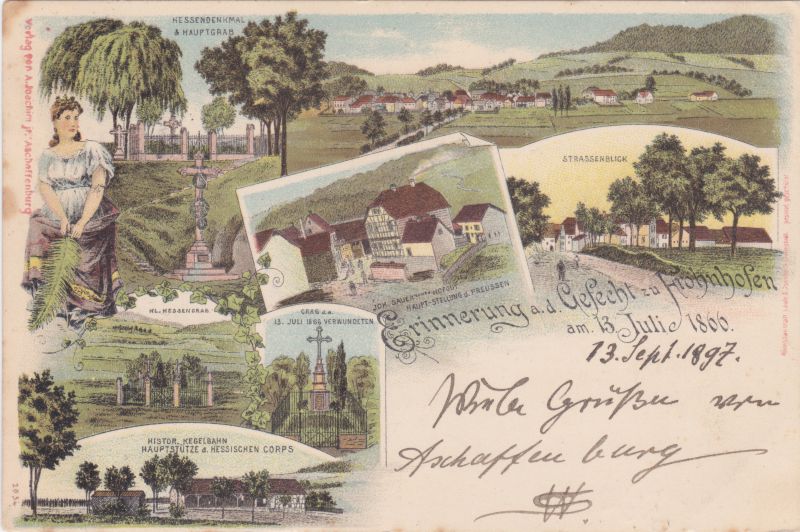 HESSENDENKMAL
& HAUPTGRAB
Verlag von A. Joachim jr. Aschaffenburg
STRASSENBLICK
JOH. SAUER HOFGUT
HAUPT-STELLUNG d. PREUSSEN
KL. HESSENGRAB
GRAB d. a.
13. JULI 1866 VERWUNDETEN
Erinnerung a. d. Gefecht zu Frohnhofen
am 13. Juli 1866.
13. Sept. 1897.
Viele Grüße von
Aschaffenburg
HISTOR. KEGELBAHN
HAUPTSTÜTZE d. HESSISCHEN CORPS